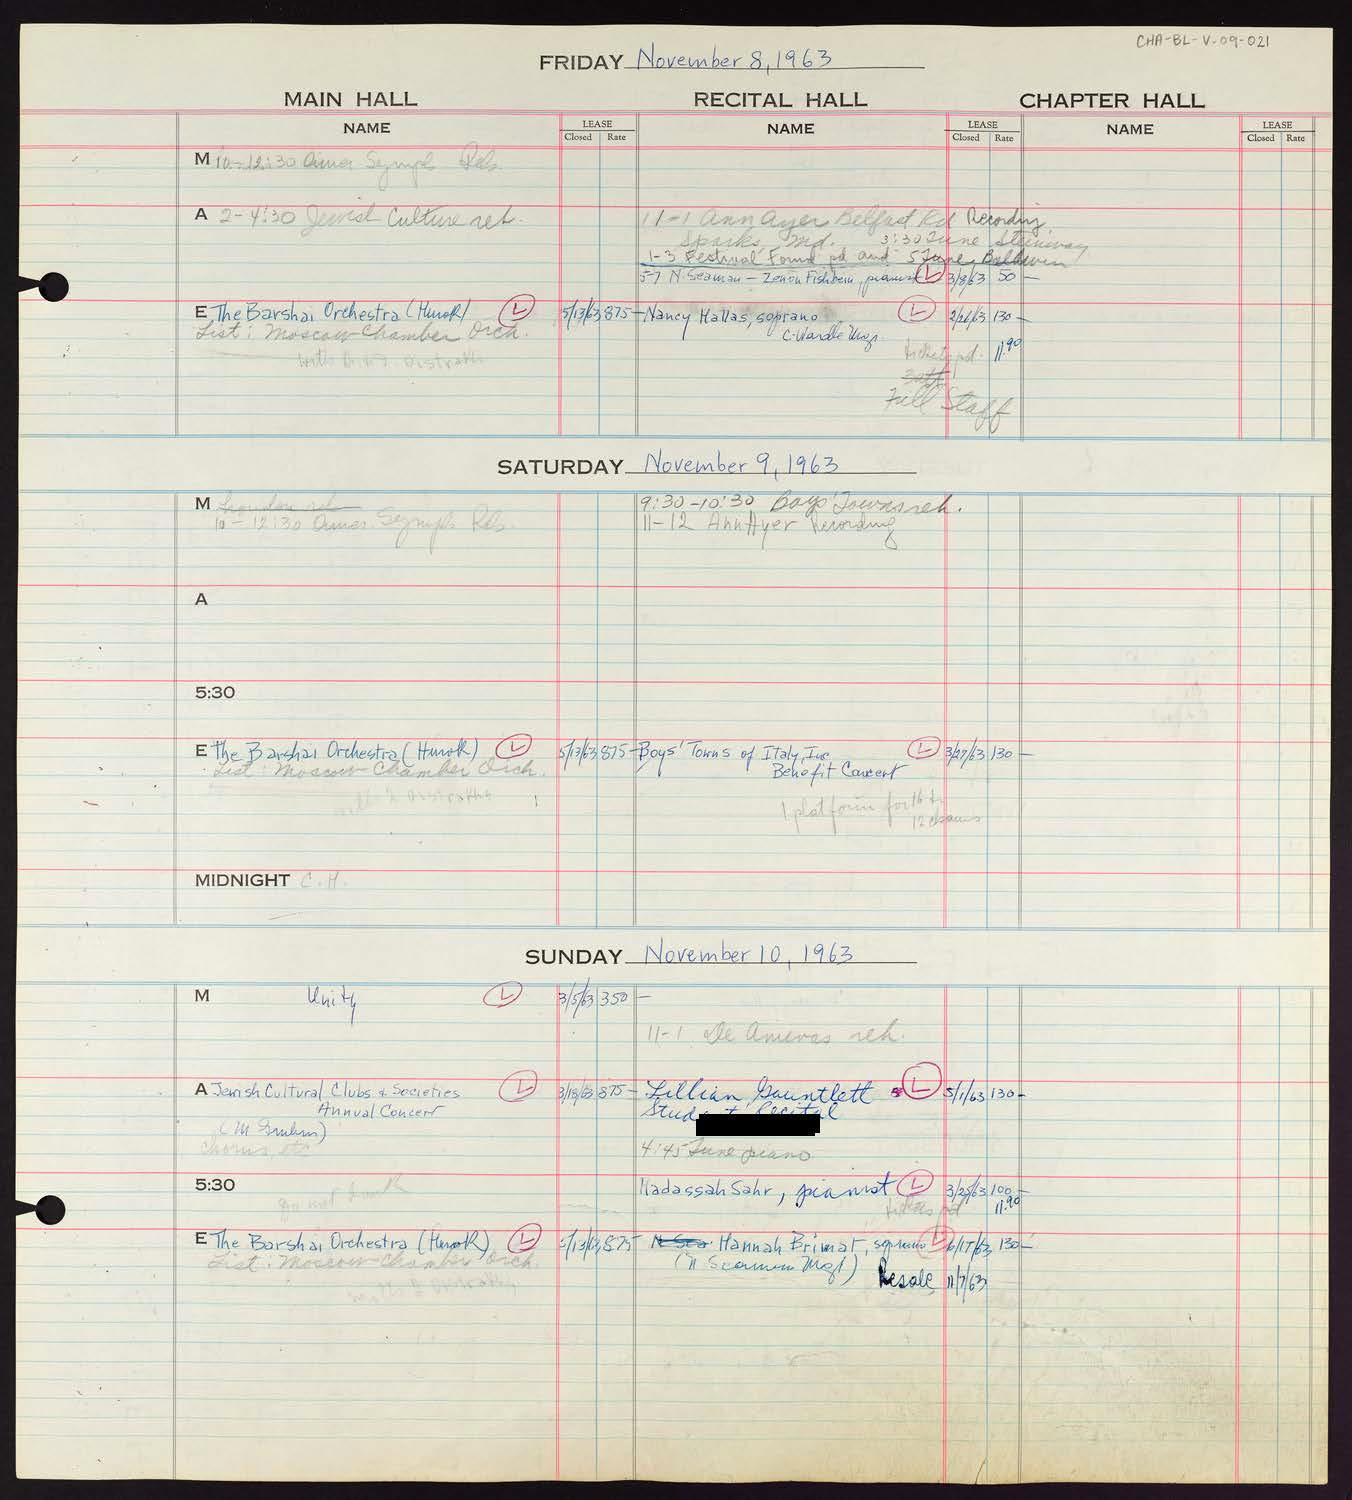 CHA-BL-V-09-021
FRIDAY November 8, 1963
MAIN HALL RECITAL HALL CHAPTER HALL
NAME LEASE Closed Rate NAME LEASE Closed Rate NAME LEASE Closed Rate
M 10-12:30 Amer Symph Reh.
A 2-4:30 Jewish Culture reh.
11-1 Ann Ayer Belfast Rd Recording
Sparks, Md. 3:30 Tune Steinway
1-3 Festival Found pd and 5 Tune Baldwin
5-7 N. Seaman - Zenon Fishbein, pianist L 3/8/63 50 -
E The Barshai Orchestra (Hurok) L 5/13/63 875 - Nancy Hallas, soprano L 2/26/63 130 -
List: Moscow Chamber Orch. C. Wardle Mgr.
tickets pd. 11.90
Full Staff
SATURDAY November 9, 1963
M
10-12:30 Amer. Symph Reh.
9:30-10:30 Boys' Towns reh.
11-12 Ann Ayer Recording
A
5:30
E The Barshai Orchestra (Hurok) L 5/13/63 875 - Boys' Towns of Italy, Inc. L 3/27/63 130 -
List: Moscow Chamber Orch. Benefit Concert
1 platform for 16 &
12 chairs
MIDNIGHT C.H.
SUNDAY November 10, 1963
M Unity L 3/5/63 350 -
11-1 De Amevas reh.
A Jewish Cultural Clubs & Societies L 3/18/63 875 - Lillian Gauntlett L 5/1/63 130 -
Annual Concert Student Recital
chorus, etc
4:45 Tune piano
5:30 Hadassah Sahr, pianist L 3/25/63 100 -
tickets pd 11.90
E The Barshai Orchestra (Hurok) L 5/13/63 875 N. Sea Hannah Brimat, soprano L 6/17/63 130 -
List: Moscow Chamber Orch. (N Seaman Mgt)
Resale 11/7/63